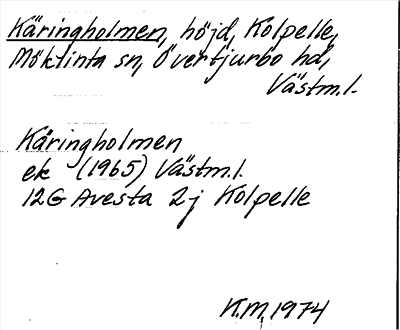 Käringholmen, höjd, Kolpelle,
Möklinta sn, Övertjurbo hd,
Västm.l.
Käringholmen
ek (1965) Västm.l.
12G Avesta 2j Kolpelle
K.M, 1974